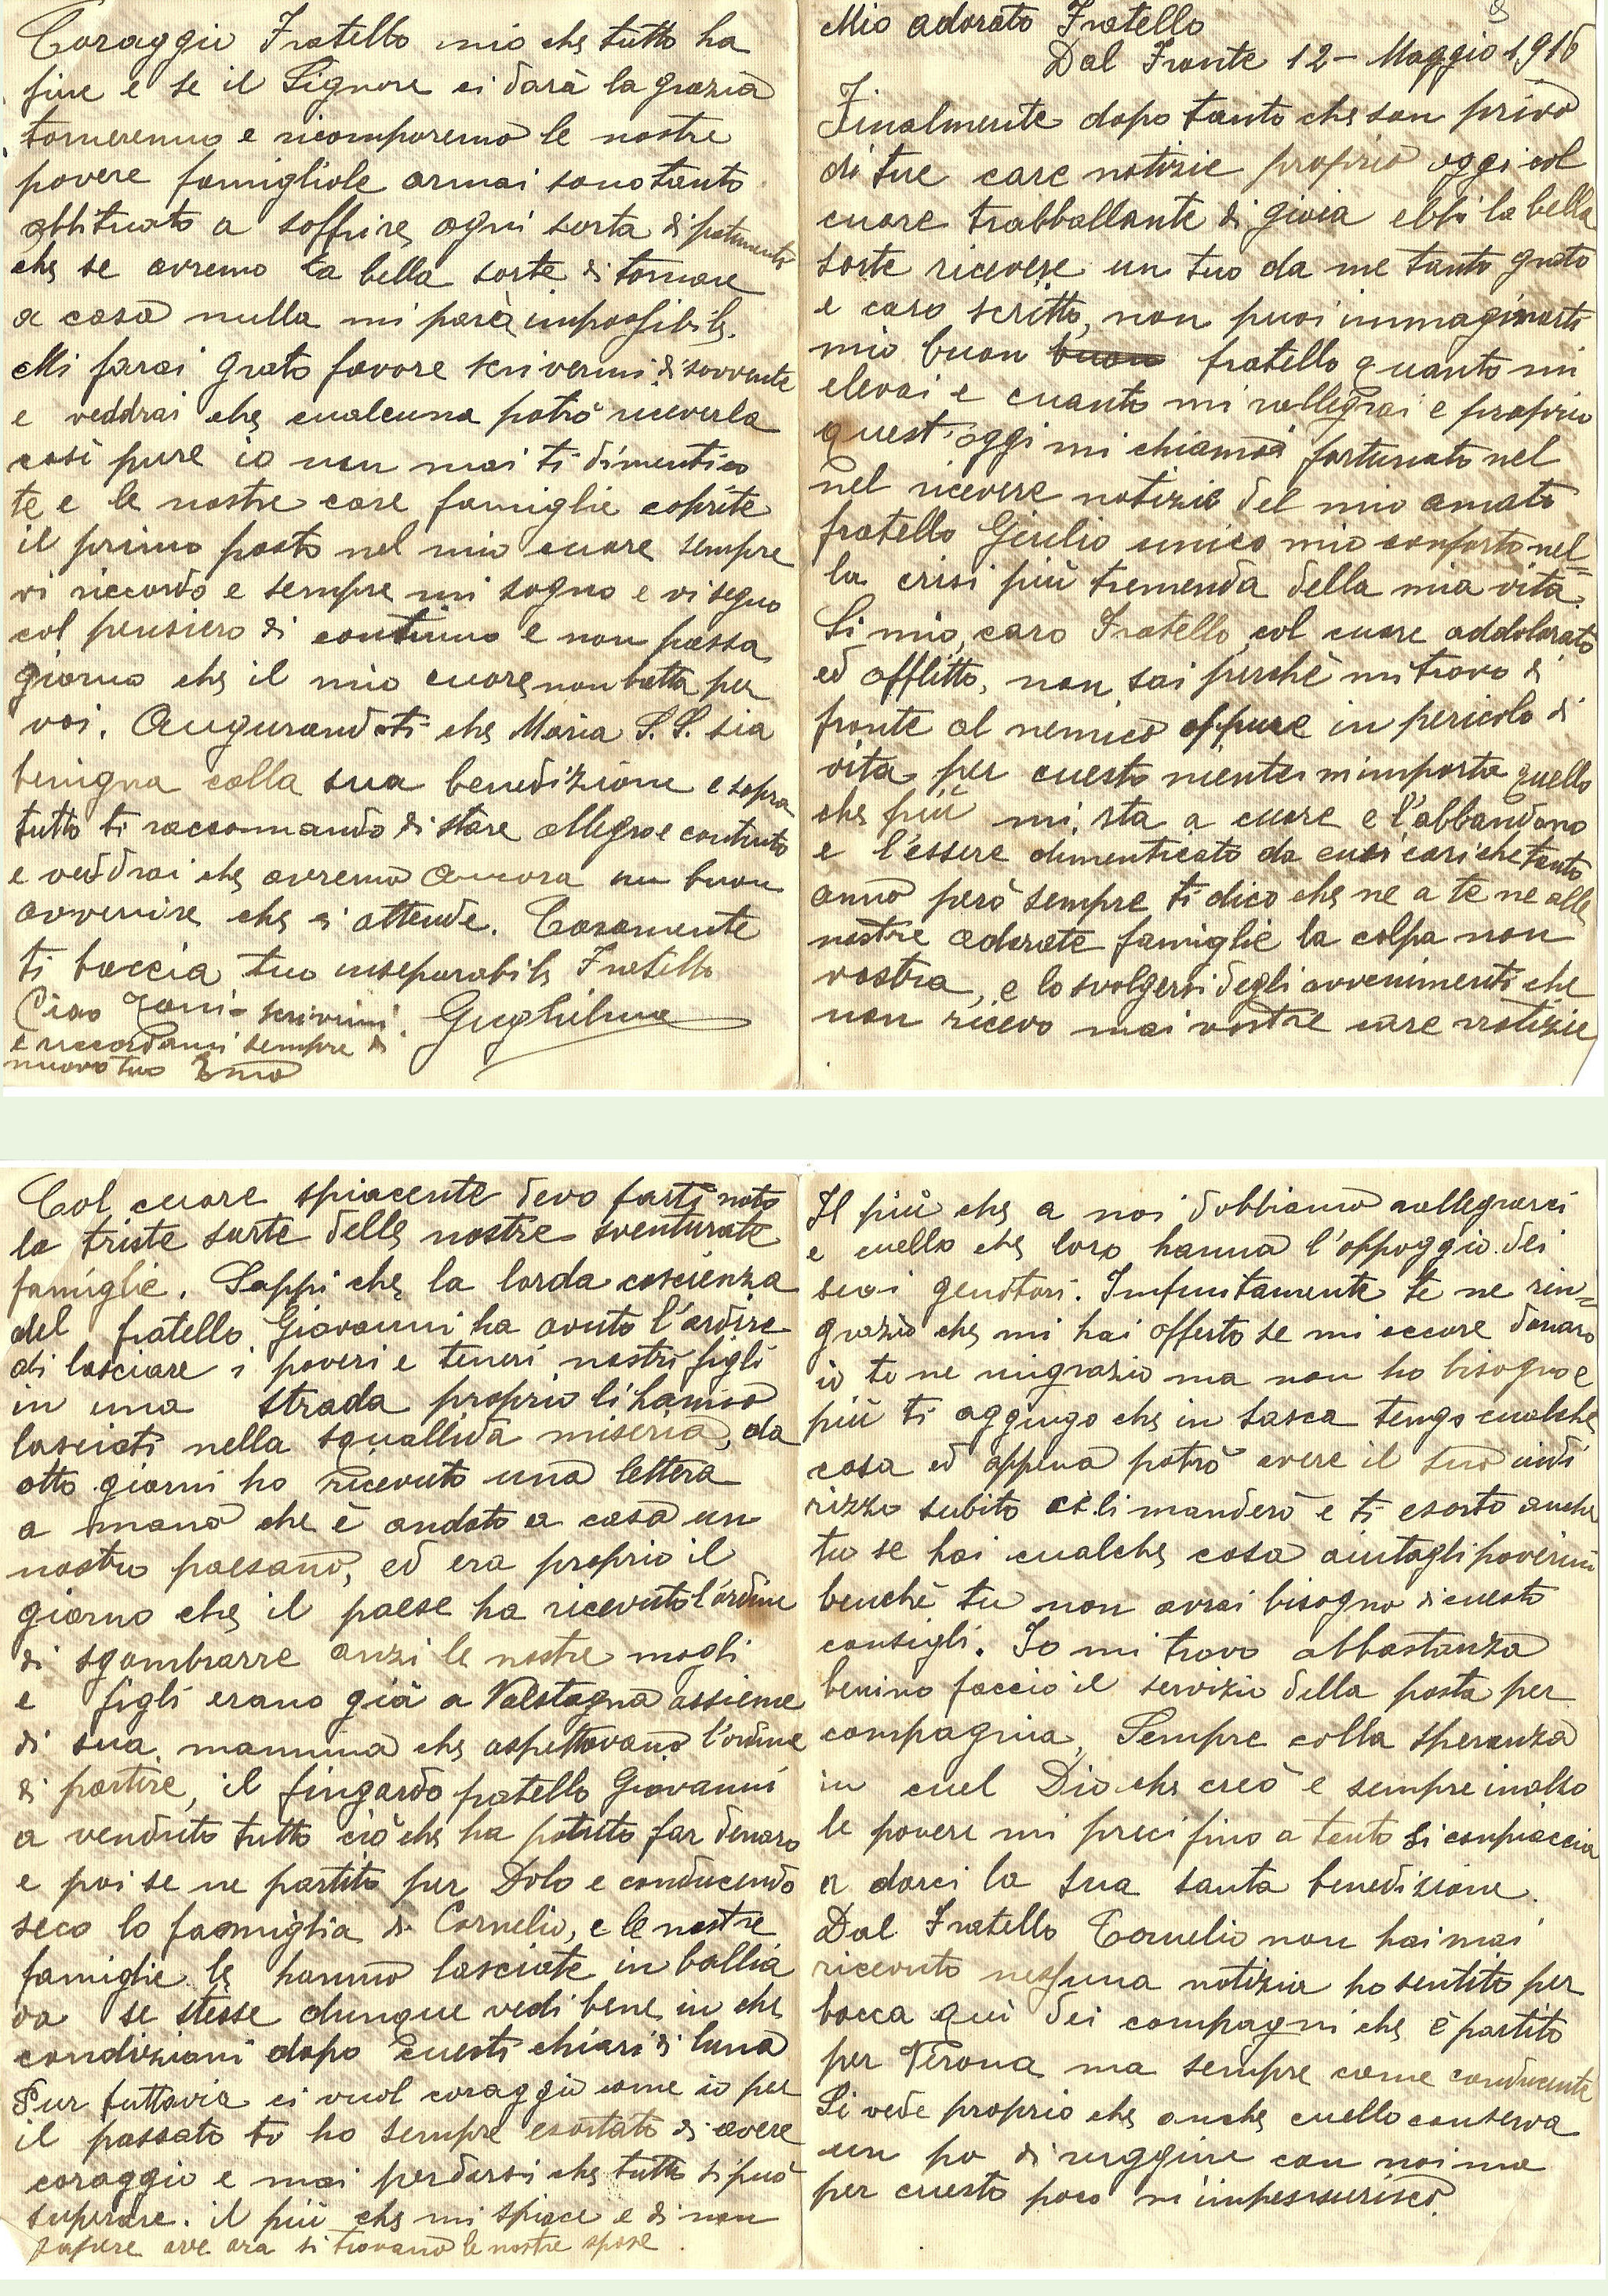 Mio adorato Fratello
Dal Fronte 12 - Maggio 1916
Finalmente dopo tanto che son privo
di tue care notizie proprio oggi col
cuore trabballante di gioia ebbi la bella
sorte ricevere un tuo da me tanto grato
e caro scritto, non puoi immaginarti
mio buon buon fratello quanto mi
elevai e cuanto mi rallegrai e proprio
quest'oggi mi chiamai fortunato nel
nel ricevere notizie del mio amato
fratello Giulio unico mio conforto nel=
la crisi più tremenda della mia vita.
Si mio, caro Fratello, col cuore addolorato
ed afflitto, non sai perchè mi trovo di
fronte al nemico oppure in pericolo di
vita per cuesto niente m'importa quello
che più mi sta a cuore e l'abbandono
e l'essere dimenticato da cuei cari che tanto
anno però sempre ti dico che ne a te ne alle
nostre adorate famiglie la colpa non
vostra, e lo svolgersi degli avvenimenti che
non ricevo mai vostre care notizie
Col cuore spiacente devo farti noto
la triste sorte delle nostre sventurate
famiglie. Sappi che la lorda coscienza
del fratello Giovanni ha avuto l'ardire
di lasciare i poveri e teneri nostri figli
in una strada proprio li hanno
lasciati nella squallida miseria, da
otto giorni ho ricevuto una lettera
a mano che è andato a casa un
nostro paesano, ed era proprio il
giorno che il paese ha ricevuto l'ordine
di sgombrarre anzi le nostre mogli
e figli erano già a Valstagna assieme
di sua mamma che aspettavano l'ordine
di partire, il fingardo fratello Giovanni
a venduto tutto ciò che ha potuto far denaro
e poi se ne partito per Dolo e conducendo
seco la famiglia di Cornelio, e le nostre
famiglie le hanno lasciate in ballia
da se stesse dunque vedi bene in che
condizioni dopo cuesti chiari di luna
Pur tuttavia ci vuol coraggio come io per
il passato ti ho sempre esortato di avere
coraggio e mai perdersi che tutto si può
superare. il più che mi spiace e di non
sapere ove ora si trovano le nostre spose.
Il più che a noi dobbiamo rallegrarci
e cuello che loro hanno l'appoggio dei
suoi genitori. Infinitamente te ne rin=
grazio che mi hai offerto se mi occore denaro
io te ne ringrazio ma non ho bisogno e
più ti aggiugo che in tasca tengo cualche
cosa ed appena potrò avere il suo indi
rizzo subito ce li manderò e ti esorto anche
tu se hai cualche cosa aiutagli poverini
benchè tu non avrai bisogno di cuesto
consigli. Io mi trovo abbastanza
benino faccio il servizio della posta per
compagnia. Sempre colla speranza
in cuel Dio che creò e sempre inalzo
le povere mi preci fino a tanto si conpiaccia
a darci la sua santa benedizione.
Dal Fratello Cornelio non hai mai
ricevuto nessuna notizia ho sentito per
bocca quì dei compagni che è partito
per Verona ma sempre come conducente
Si vede proprio che anche cuello conserva
un po di ruggine con noi ma
per cuesto poco m'impensurisco
Coraggio Fratello mio che tutto ha
fine e se il Signore ci darà la grazia
torneremo e ricomporemo le nostre
povere famigliole ormai sono tanto
abbituato a soffrire ogni sorta di patimenti
che se avremo la bella sorte di tornare
a casa nulla mi parà impossibile.
Mi farai grato favore scrivermi di sovvente
e veddrai che cualcuna potrò riceverla
così pure io non mai ti dimentico
te e le nostre care famiglie coprite
il primo posto nel mio cuore sempre
vi riccordo e sempre mi sogno e vi seguo
col pensiero di continuo e non passa
giorno che il mio cuore non batta per
voi. Augurandoti che Maria S.S. sia
benigna colla sua benedizione e sopra
tutto ti raccomando di stare allegro e contento
e veddrai che avremo ancora un buon
avvenire che ci attende. Caramente
ti baccia tuo inseparabile Fratello
Ciao scrivimi. Guglielmo
e riccordami sempre di
nuovo tuo